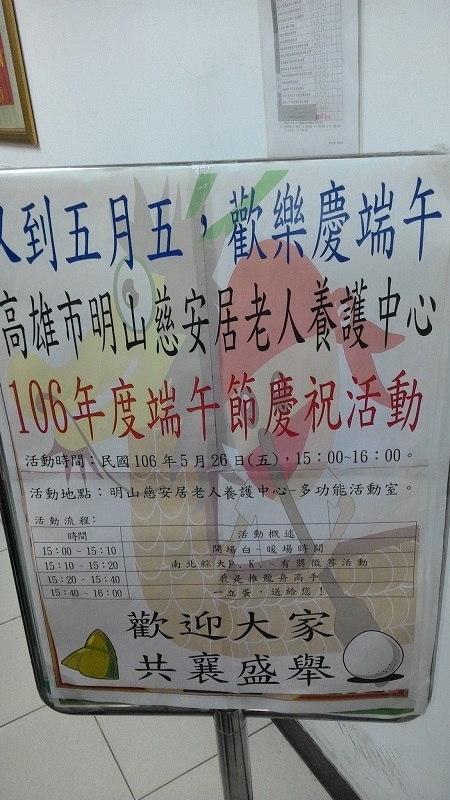 到五月五，歡樂慶端午
高雄市明山慈安居老人養護中心
106年度端午節慶祝活動
活動時間：民國106年5月26日(五)，15：00~16：00。
活動地點：明山慈安居老人養護中心-多功能活動室。
活動流程：
時間 活動概述
15：00－15：10 開場白-暖場時間
15：10－15：20 南北綜大P.K.~有獎徵答活動
15：20－15：40 我是推龍舟高手
15：40－16：00 一立蛋，送給您！
歡迎大家
共襄盛舉